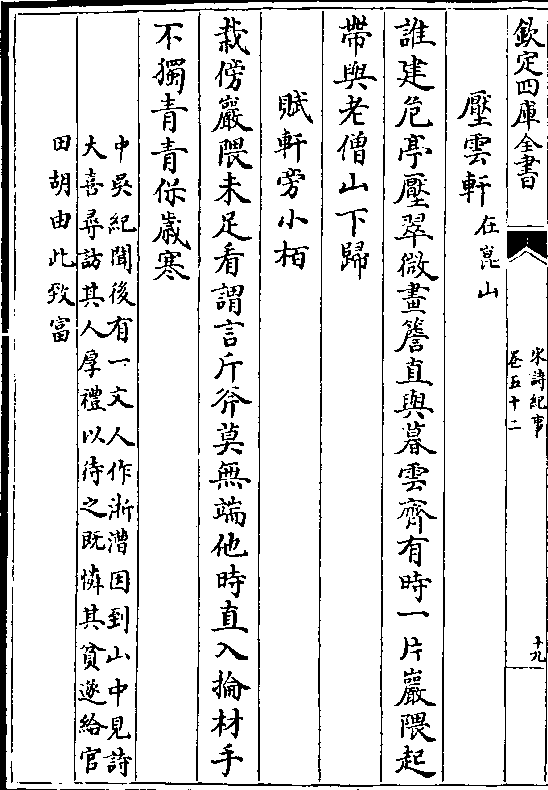 欽定四庫全書
宋詩紀事
卷五十二
十九
壓雲軒在崑山
誰建危亭壓翠微畫簷直與暮雲齊有時一片巖隈起
帶與老僧山下歸
賦軒旁小栢
栽傍巖隈未足看謂言斤斧莫無端他時直入掄材手
不獨青青保歳寒
中吳紀聞後有一文人作浙漕因到山中見詩
大喜尋訪其人厚禮以待之既憐其貧遂給官
田胡由此致富